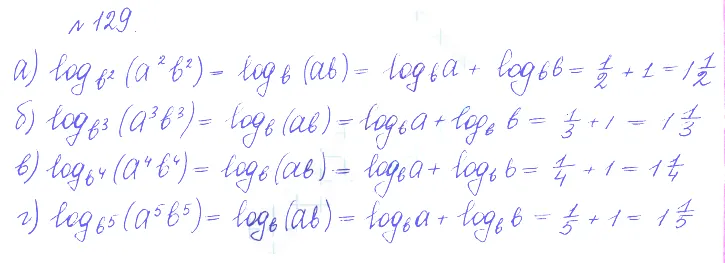 № 129.
а) log_{b²}(a²b²) = log_b(ab) = log_b a + log_b b = 1/2 + 1 = 1 1/2
б) log_{b³}(a³b³) = log_b(ab) = log_b a + log_b b = 1/3 + 1 = 1 1/3
в) log_{b⁴}(a⁴b⁴) = log_b(ab) = log_b a + log_b b = 1/4 + 1 = 1 1/4
г) log_{b⁵}(a⁵b⁵) = log_b(ab) = log_b a + log_b b = 1/5 + 1 = 1 1/5